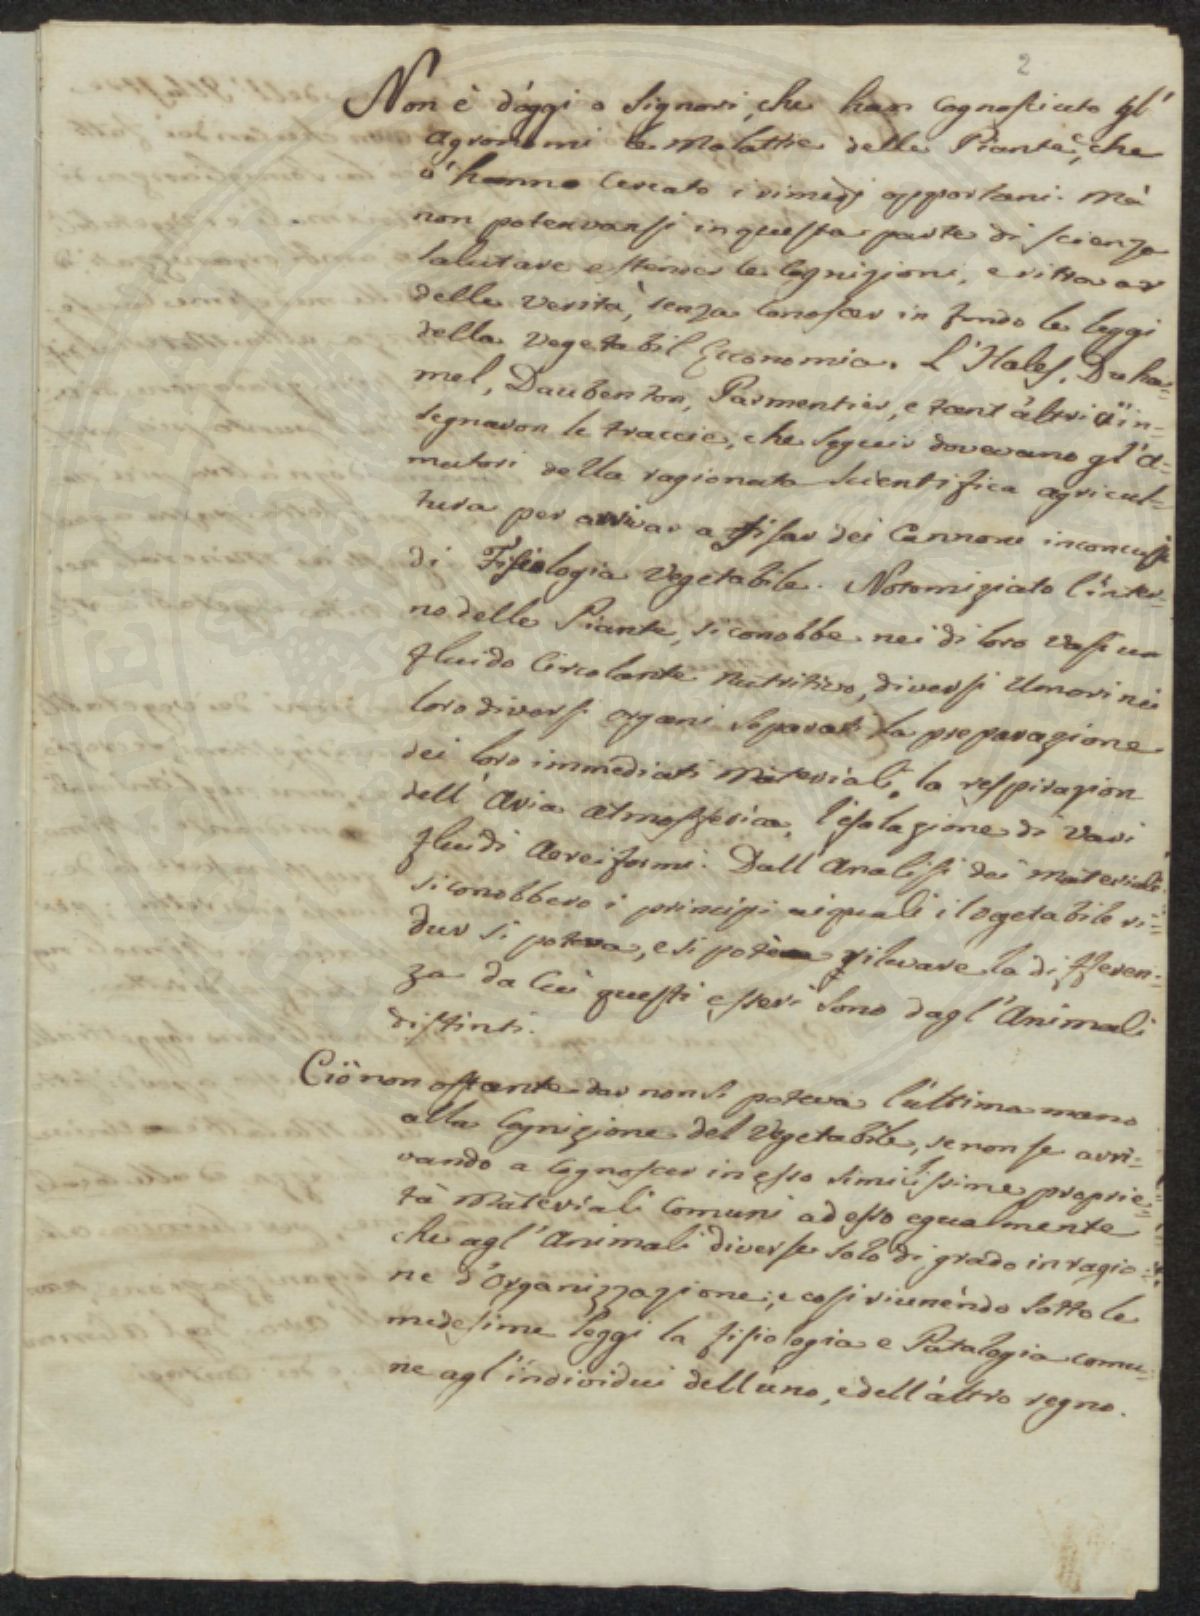 2
Non è d'oggi o Signori, che han cognosciuto gl'
agronomi le malattie delle Piante, che
n'hanno cercato i rimedj opportuni. Mà
non potevansi in questa parte di scienza
salutare estender le cognizioni, e ritrar
delle verità, senza conoscer in fondo le leggi
della vegetabil Economia. L'Hales, Duha=
mel, Daubenton, Parmentier, e tant'altri c'in=
segnaron le traccie, che seguir dovevano gl'a=
matori della ragionata scientifica agricul=
tura per arrivar a fissar dei Cannoni inconcussi
di Fisiologia Vegetabile. Notomiziato l'inter=
no delle Piante, si conobbe nei di loro vasi un
fluido circolante nutritivo, diversi Umori nei
loro diversi organi separati, la preparazione
dei loro immediati materiali, la respirazion
dell'Aria atmosferica, l'esalazione di varj
fluidi aereiformi. Dall'Analisi dei materiali
si conobbero i principj ai quali il vegetabile ri=
dur si poteva, e si poteva rilevare la differen=
za da cui questi esseri sono dagl'Animali
distinti.
Ciò non ostante dar non si poteva l'ultima mano
alla cognizione del Vegetabile, se non se arri=
vando a cognoscer in esso similissime proprie=
tà materiali comuni ad esso egualmente
che agl'Animali diverse solo di grado in ragio=
ne d'Organizzazione; e così riunendo sotto le
medesime leggi la fisiologia e Patalogia comu=
ne agl'individui dell'uno, e dell'altro regno.